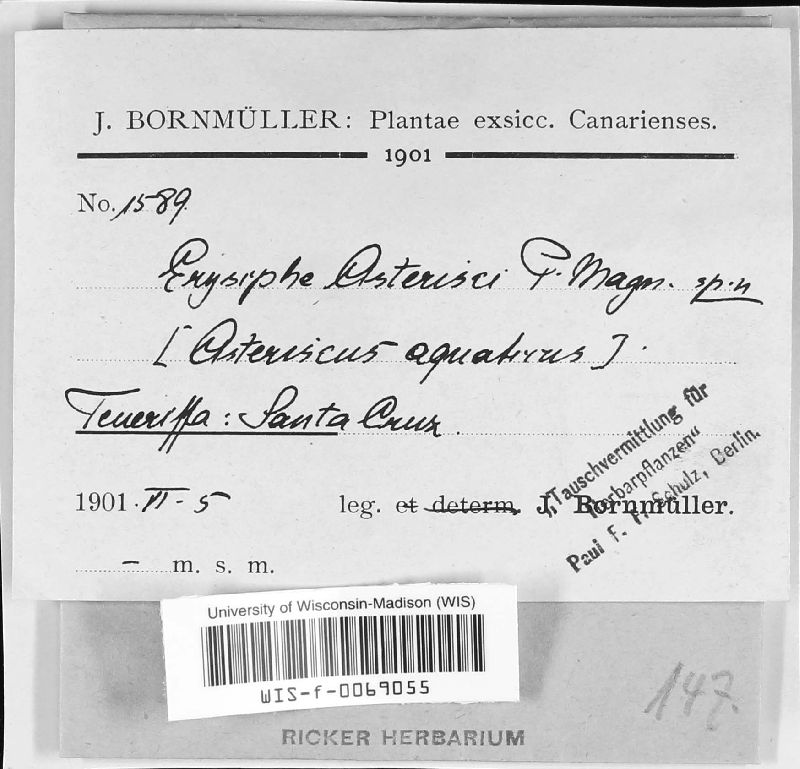 J. BORNMÜLLER: Plantae exsicc. Canarienses.
1901
No. 1589
Erysiphe Asterisci P. Magn. sp. n
[Asteriscus aquaticus].
Teneriffa: Santa Cruz.
1901. VI - 5 leg. et determ. J. Bornmüller.
– m. s. m.
„Tauschvermittlung für
Herbarpflanzen“
Paul F. F. Schulz, Berlin.
University of Wisconsin-Madison (WIS)
WIS-f-0069055
147.
RICKER HERBARIUM